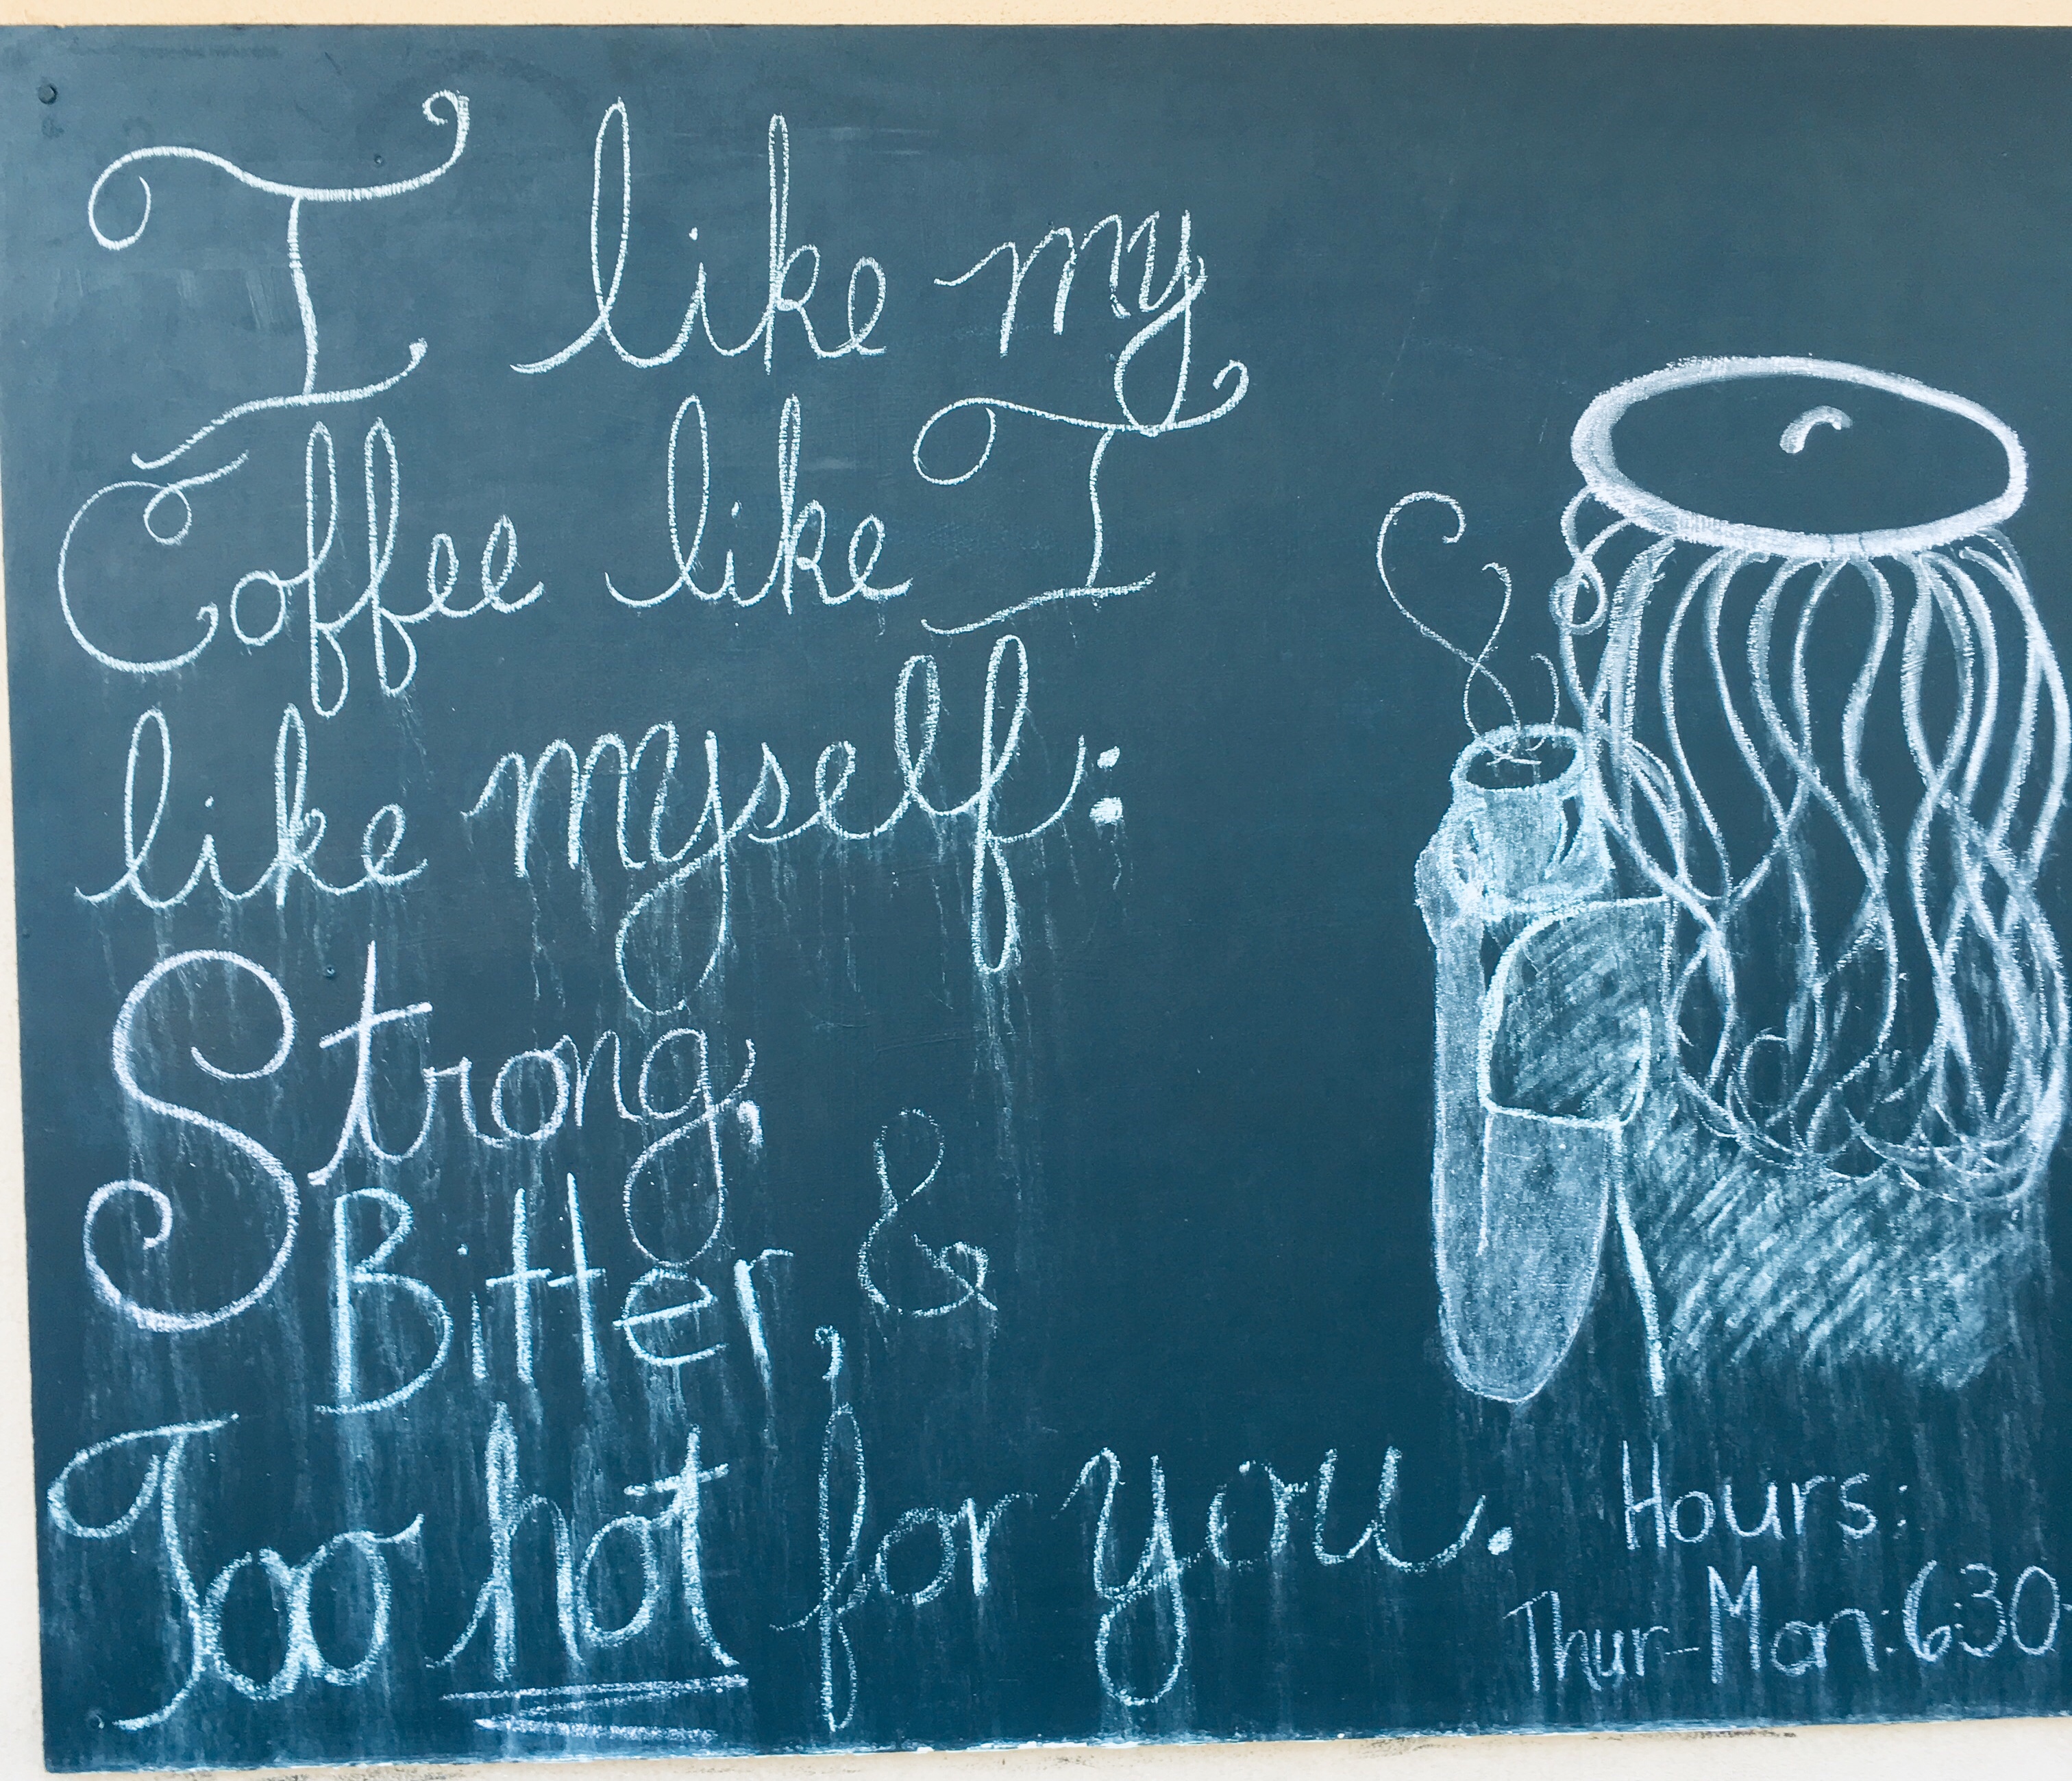 I like my
Coffee like I
like myself:
Strong,
Bitter, &
Too hot for you.
Hours:
Thur-Mon: 6:30